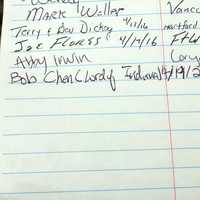 Mark Waller Vanco
Terry & Bev Dickey 4/11/16 Hartford
Joe Flores 4/14/16 Ft W
Abby Irwin Cory
Bob Chen Indiana 4/19/2